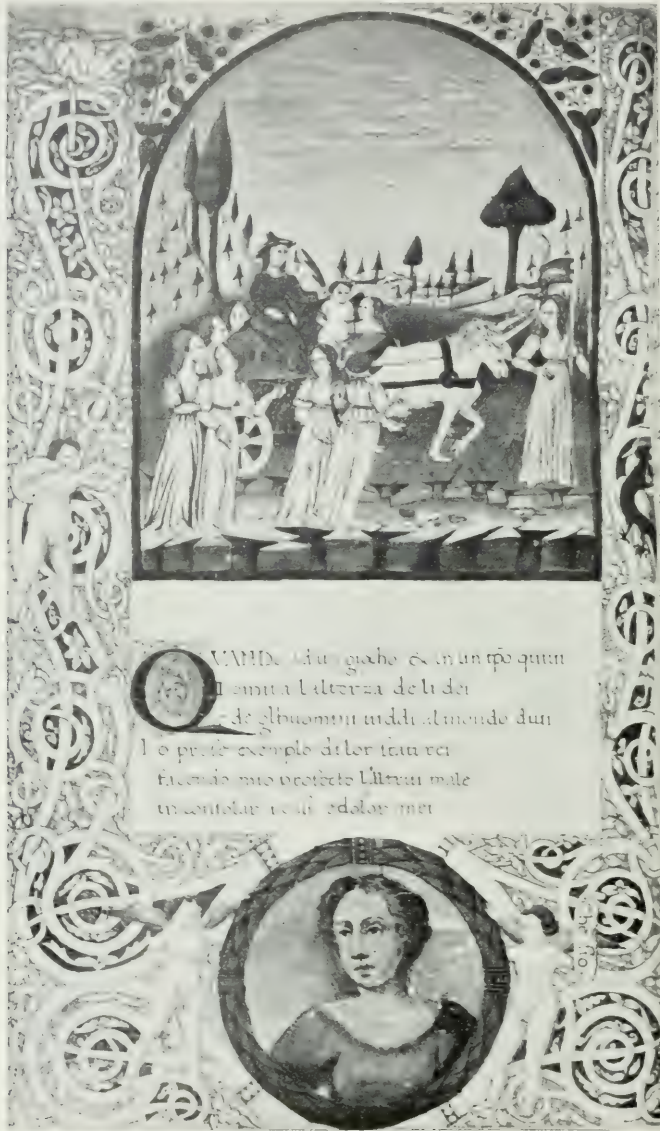 QVANDO ad un giogho & in un tpo quiui
Domita lalterza de li dei
E de glhuomini uiddi al mondo diui
I o preso exemplo di lor stati rei
facendo mio profecto laltrui male
in consolar edolor mei